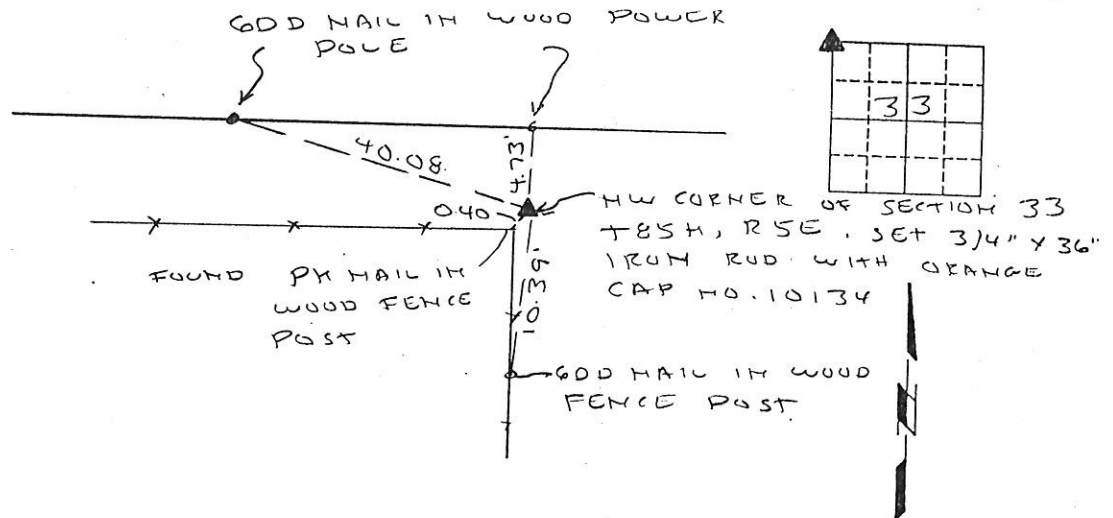 60D NAIL IN WOOD POWER
POLE
33
40.08
4.73'
0.40
NW CORNER OF SECTION 33
T85N, R5E. SET 3/4" X 36"
IRON ROD WITH ORANGE
CAP NO. 10134
FOUND PK NAIL IN
WOOD FENCE
POST
10.39'
60D NAIL IN WOOD
FENCE POST
N